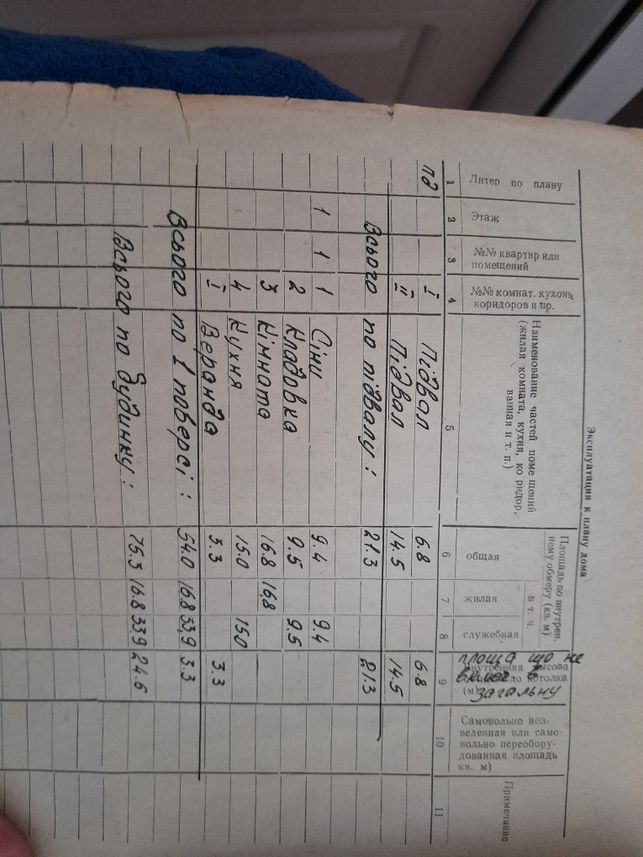 Эксплуатация к плану дома
Литер по плану
Этаж
№№ квартир или помещений
№№ комнат. кухонь, коридоров и пр.
Наименование частей поме щений (жилая комната, кухня, ко ридор, ванная и т. п.)
Площадь по внутрен. нему обмеру (кв. м)
общая
в т. ч.
жилая
служебная
площа що не
загальну
Самовольно воз-
веденная или само-
вольно переобору-
дованная площадь
кв. м)
Примечание
1 2 3 4 5 6 7 8 9 10 11
пд I Підвал 6.8 6.8
II Підвал 14.5 14.5
Всього по підвалу: 21.3 21.3
1 1 1 Сіни 9.4 9.4
2 Кладовка 9.5 9.5
3 Кімната 16.8 16.8
4 Кухня 15.0 15.0
I Веранда 3.3 3.3
Всього по 1 поверсі: 54.0 16.8 33,9 3.3
Всього по будинку: 75.3 16.8 33,9 24.6